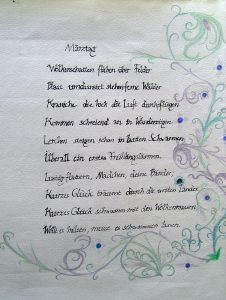 Märztag
Wolkenschatten fliehen über Felder
Blau umdunstet stehen ferne Wälder
Kraniche die hoch die Luft durchpflügen
Kommen schreiend an in Wanderzügen.
Lerchen steigen schon in lauten Schwärmen
Überall ein erstes Frühlingslärmen.
Lustig flattern, Mädchen, deine Bänder,
Kurzes Glück träumt durch die weiten Länder
Kurzes Glück schwamm mit den Wolkenmassen
Wollt es halten, musst es schwimmen lassen.